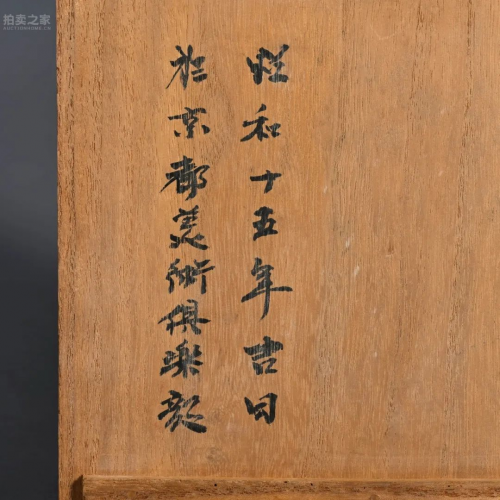 昭和十五年吉日
於京都美術倶楽部
拍卖之家